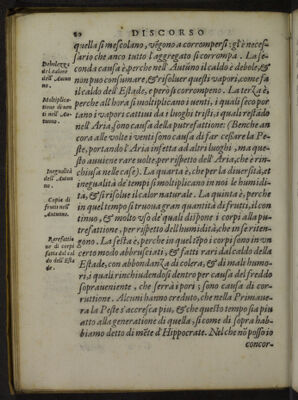 60 DISCORSO
quella si mescolano, vēgono a corrompersi; gl'è necess
sario che anco tutto l'aggregato si corrompa. La se=
conda causa è, perche nell'Autūno il caldo è debole, &
non puo consumare, & risoluer questi vapori, come fa
il caldo dell'Estade, e però si corrompeno. La terza è,
perche all'hora si moltiplicano i uenti, i quali seco por
tano i vapori cattiui da i luoghi tristi, i quali restādo
nell'Aria, sono causa della putrefattione: (Benche an
cora alle volte i venti sono causa di far cessar la Pe=
ste, portando l'Aria infetta ad altri luoghi, ma que=
sto auuiene rare uolte, per rispetto dell'Aria, che è rin=
chiusa nelle case). La quarta è, che per la diuersità, et
inegualità de' tempi si moltiplicano in noi le humidi=
tà, & si risolue il calor naturale. La quinta è, perche
in quel tempo si truoua gran quantità di frutti, il con
tinuo, & molto vso de' quali dispone i corpi alla pu=
trefattione, per rispetto dell'humidità, che in se riten=
gono. La sesta è, perche in quel tēpo i corpi sono in vn
certo modo abbrusciati, & fatti rari dal caldo della
Estade, con abbondanza di colera, & di mali humo=
ri, i quali rinchiudendosi dentro per causa del freddo
soprauenente, che serra i pori; sono causa di cor=
ruttione. Alcuni hanno creduto, che nella Primaue=
ra la Peste s'accresca piu, & che questo tempo sia piu
atto alla generatione di quella, si come di sopra hab=
biamo detto di mēte d'Hippocrate. Nel che nō posso io
concor-
Debolezza
del caldo
dell'Autun
no.
Multiplica
tione di uen
ti nell'Au-
tunno.
Inegualità
dell'Autun
no.
Copia di
frutti nell'
Autunno.
Rarefattio
ne di corpi
fatta dal cal
do dell'Esta
de.